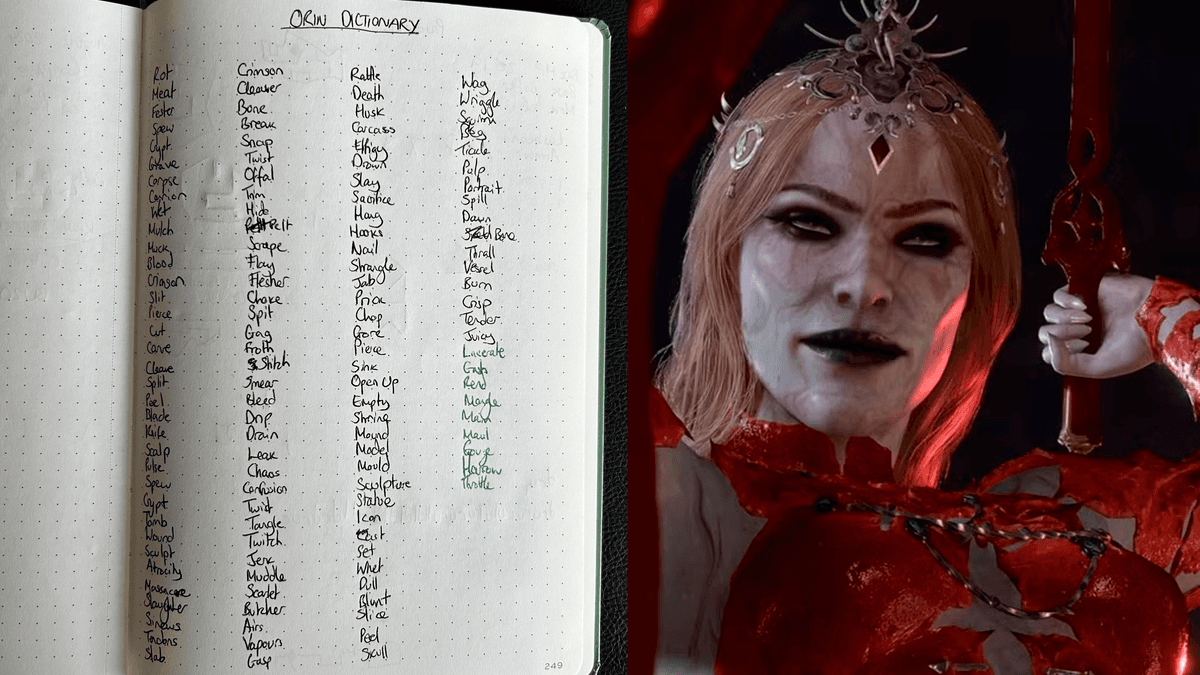 ORIN DICTIONARY
Rot
Meat
Fester
Spew
Crypt
Grave
Corpse
Carrion
Wet
Mulch
Muck
Blood
Crimson
Slit
Pierce
Cut
Carve
Cleave
Split
Peel
Blade
Knife
Scalp
Pulse
Spew
Crypt
Tomb
Wound
Sculpt
Atrocity
Massacre
Slaughter
Sinows
Tendons
Slab
Crimson
Cleaver
Bone
Break
Snap
Twist
Offal
Trim
Hide
Pelt
Scrape
Flay
Flesher
Choke
Spit
Gag
Froth
Stitch
Smear
Bleed
Drip
Drain
Leak
Chaos
Confusion
Twist
Tangle
Twitch
Jerk
Muddle
Scarlet
Butcher
Airs
Vapours
Gasp
Rattle
Death
Husk
Carcass
Effigy
Drown
Slay
Sacrifice
Hang
Hooks
Nail
Strangle
Jab
Prick
Chop
Gore
Pierce
Sink
Open Up
Empty
String
Mound
Model
Mould
Sculpture
Statue
Icon
Cast
Set
Whet
Dull
Blunt
Slice
Peel
Skull
Wag
Wriggle
Squirm
Beg
Tickle
Pulp
Portrait
Spill
Dawn
Bone
Thrall
Vessel
Burn
Crisp
Tender
Juicy
Lacerate
Gash
Rend
Mangle
Maim
Maul
Gouge
Harrow
Throttle
249